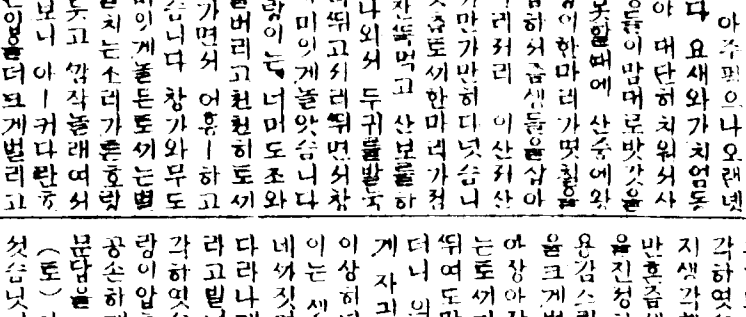 아주퍽으나오랜넷
다 요새와가치엄동
아 대단히치워서사
들이맘대로밧갓을
못할때에 산중에왕
이한마리가몃칠을
하서즘생들을삼아
이산저산
가만가만히다녓습니
토끼한마리가점
먹고 산보를하
나와서 두귀를발죽
뛰고저리뛰면서참
미잇게놀앗습니다
람이는 너머도조와
버리고천천히토끼
가면서 어흥ㅣ하고
습니다 창가와무도
미잇게놀든토끼는별
치는소래가튼호랑
듯고 깜작놀래여서
보니 아ㅣ커다란호
더크게벌리고
각하엿
지생각
만흔즘생
을진정
용감스
을크게벌
아장아
는토끼가
뛰여도망
더니 의
게 자긔
이상히
이는 생
네까짓
다라나
라고빌
각하엿
람이압
공손하
문답을
(토)